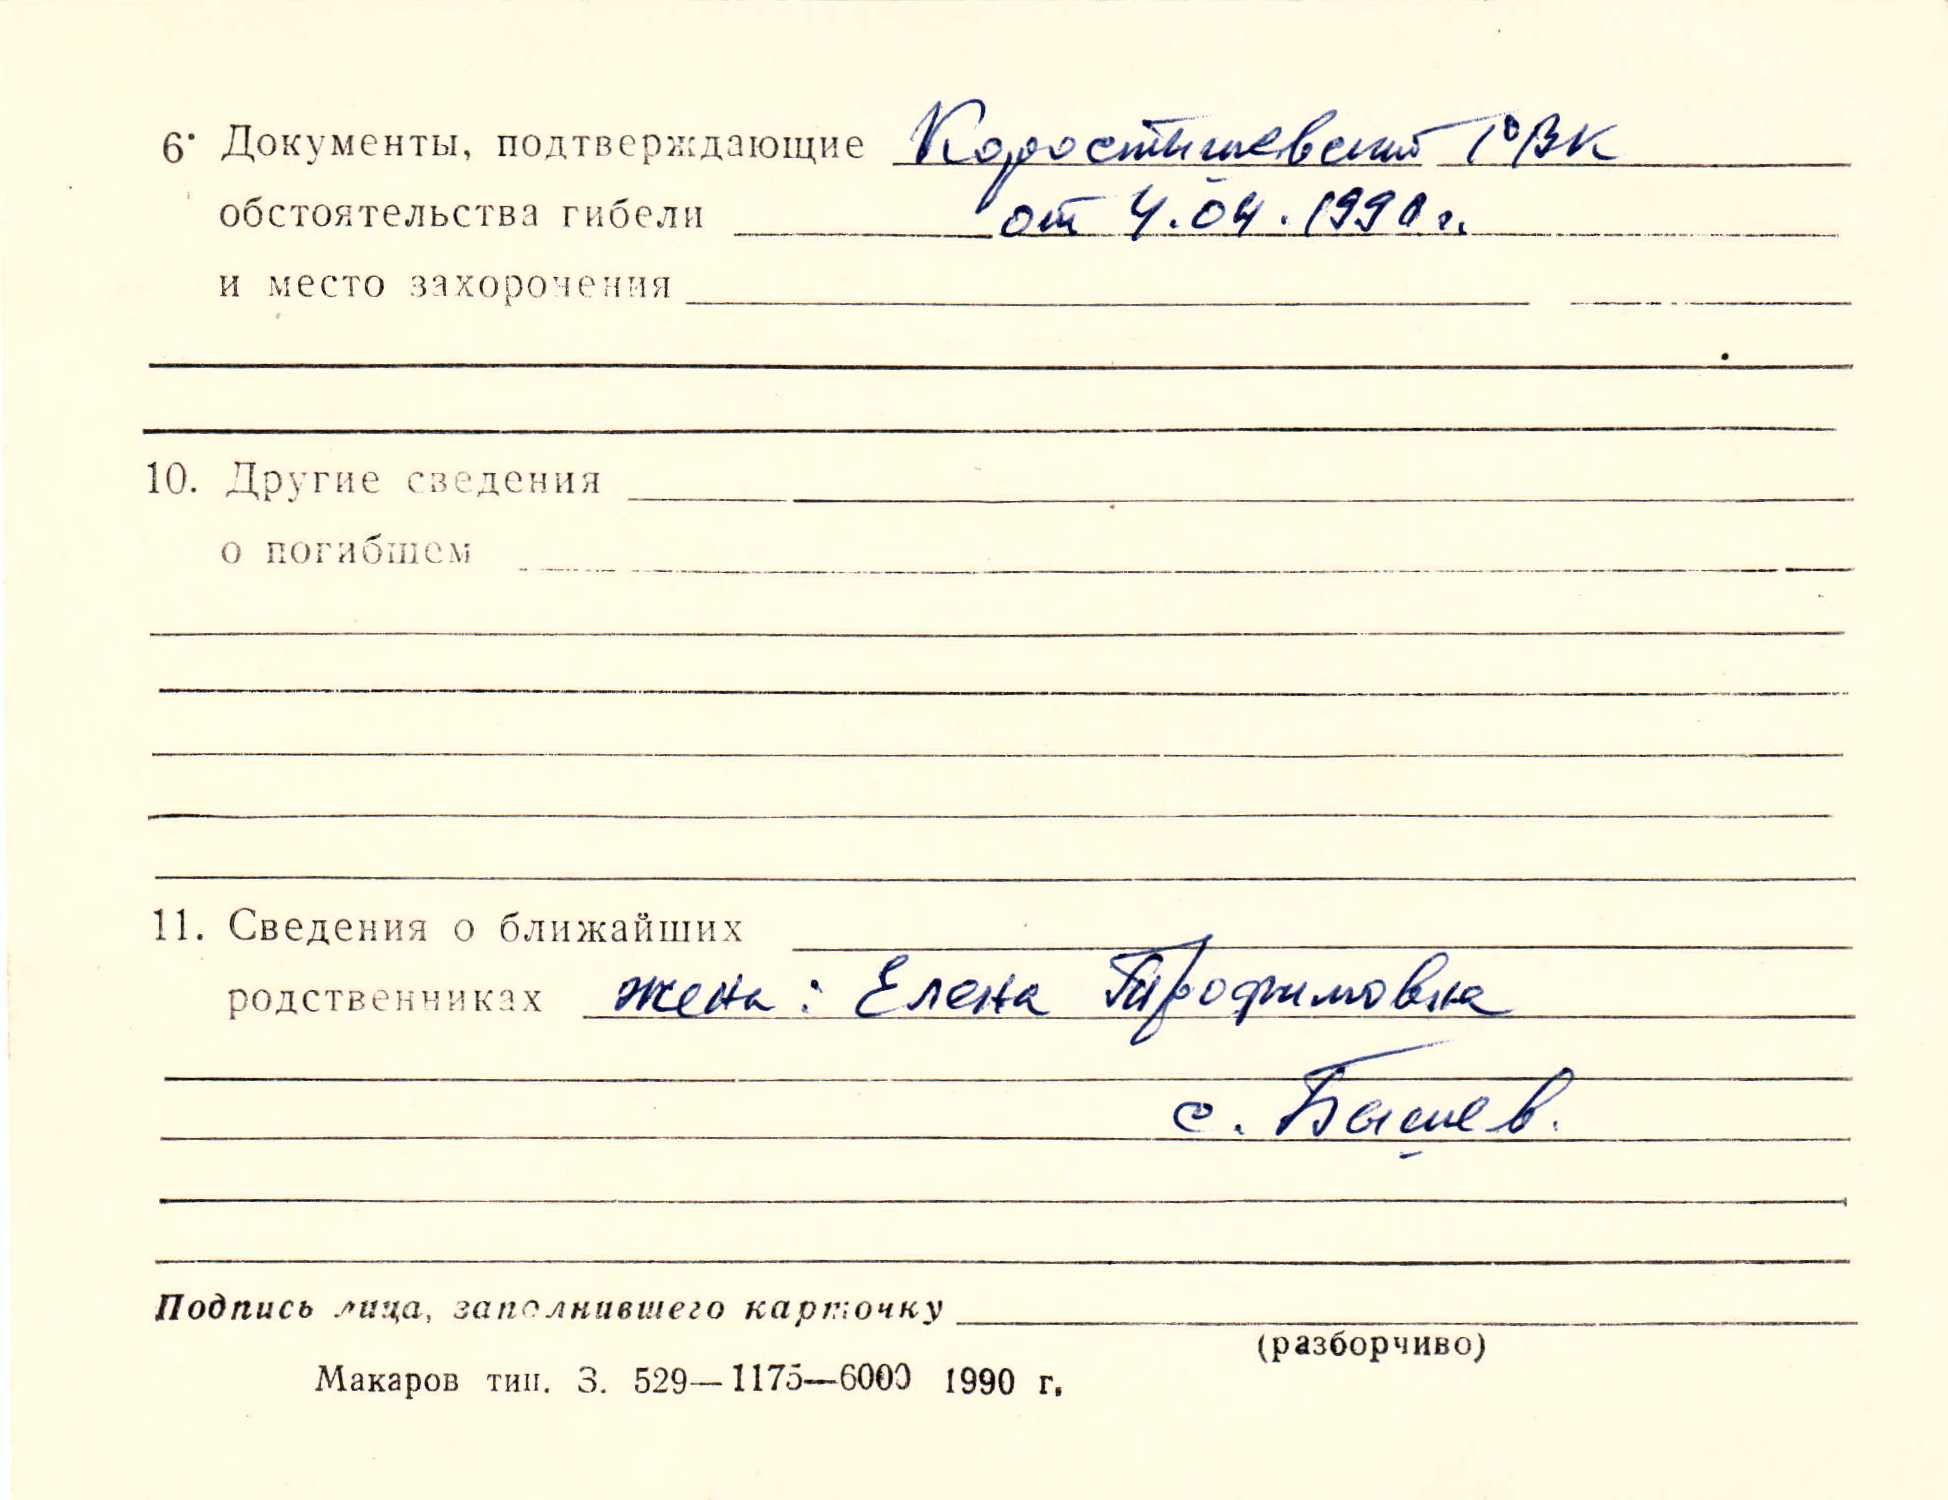 6. Документы, подтверждающие Коростышевский РВК
обстоятельства гибели от 4.04.1990 г.
и место захоронения
10. Другие сведения
о погибшем
11. Сведения о ближайших
родственниках жена: Елена Трофимовна
с. Бышев.
Подпись лица, заполнившего карточку
(разборчиво)
Макаров тип. З. 529—1175—6000 1990 г.